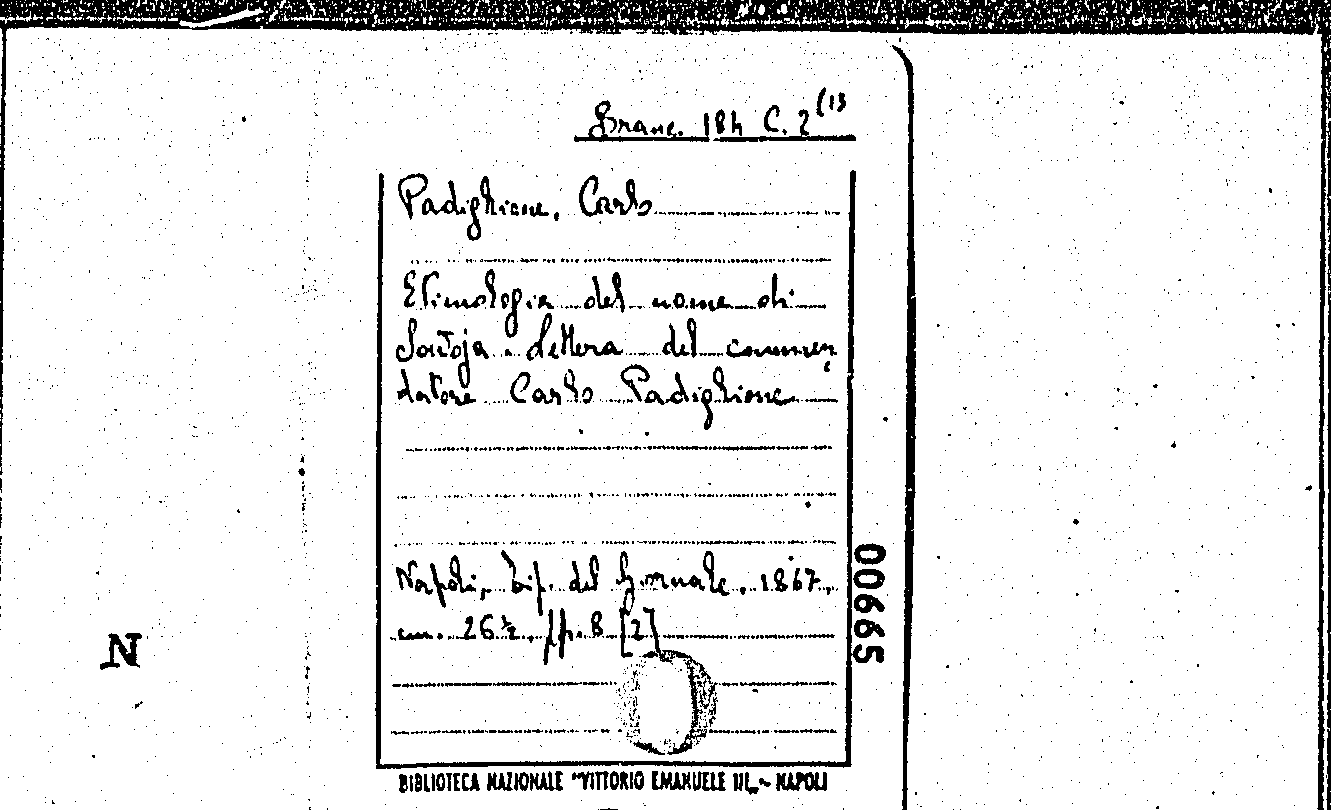 Branc. 184 C. 2 (13
Padiglione, Carlo
Etimologia del nome di
Lettera del commen,
datore Carlo Padiglione
Napoli, Tip. del Giornale, 1867,
cm. 26 ½, pp. 8 [2]
00665
N
BIBLIOTECA NAZIONALE "VITTORIO EMANUELE III„ ~ NAPOLI